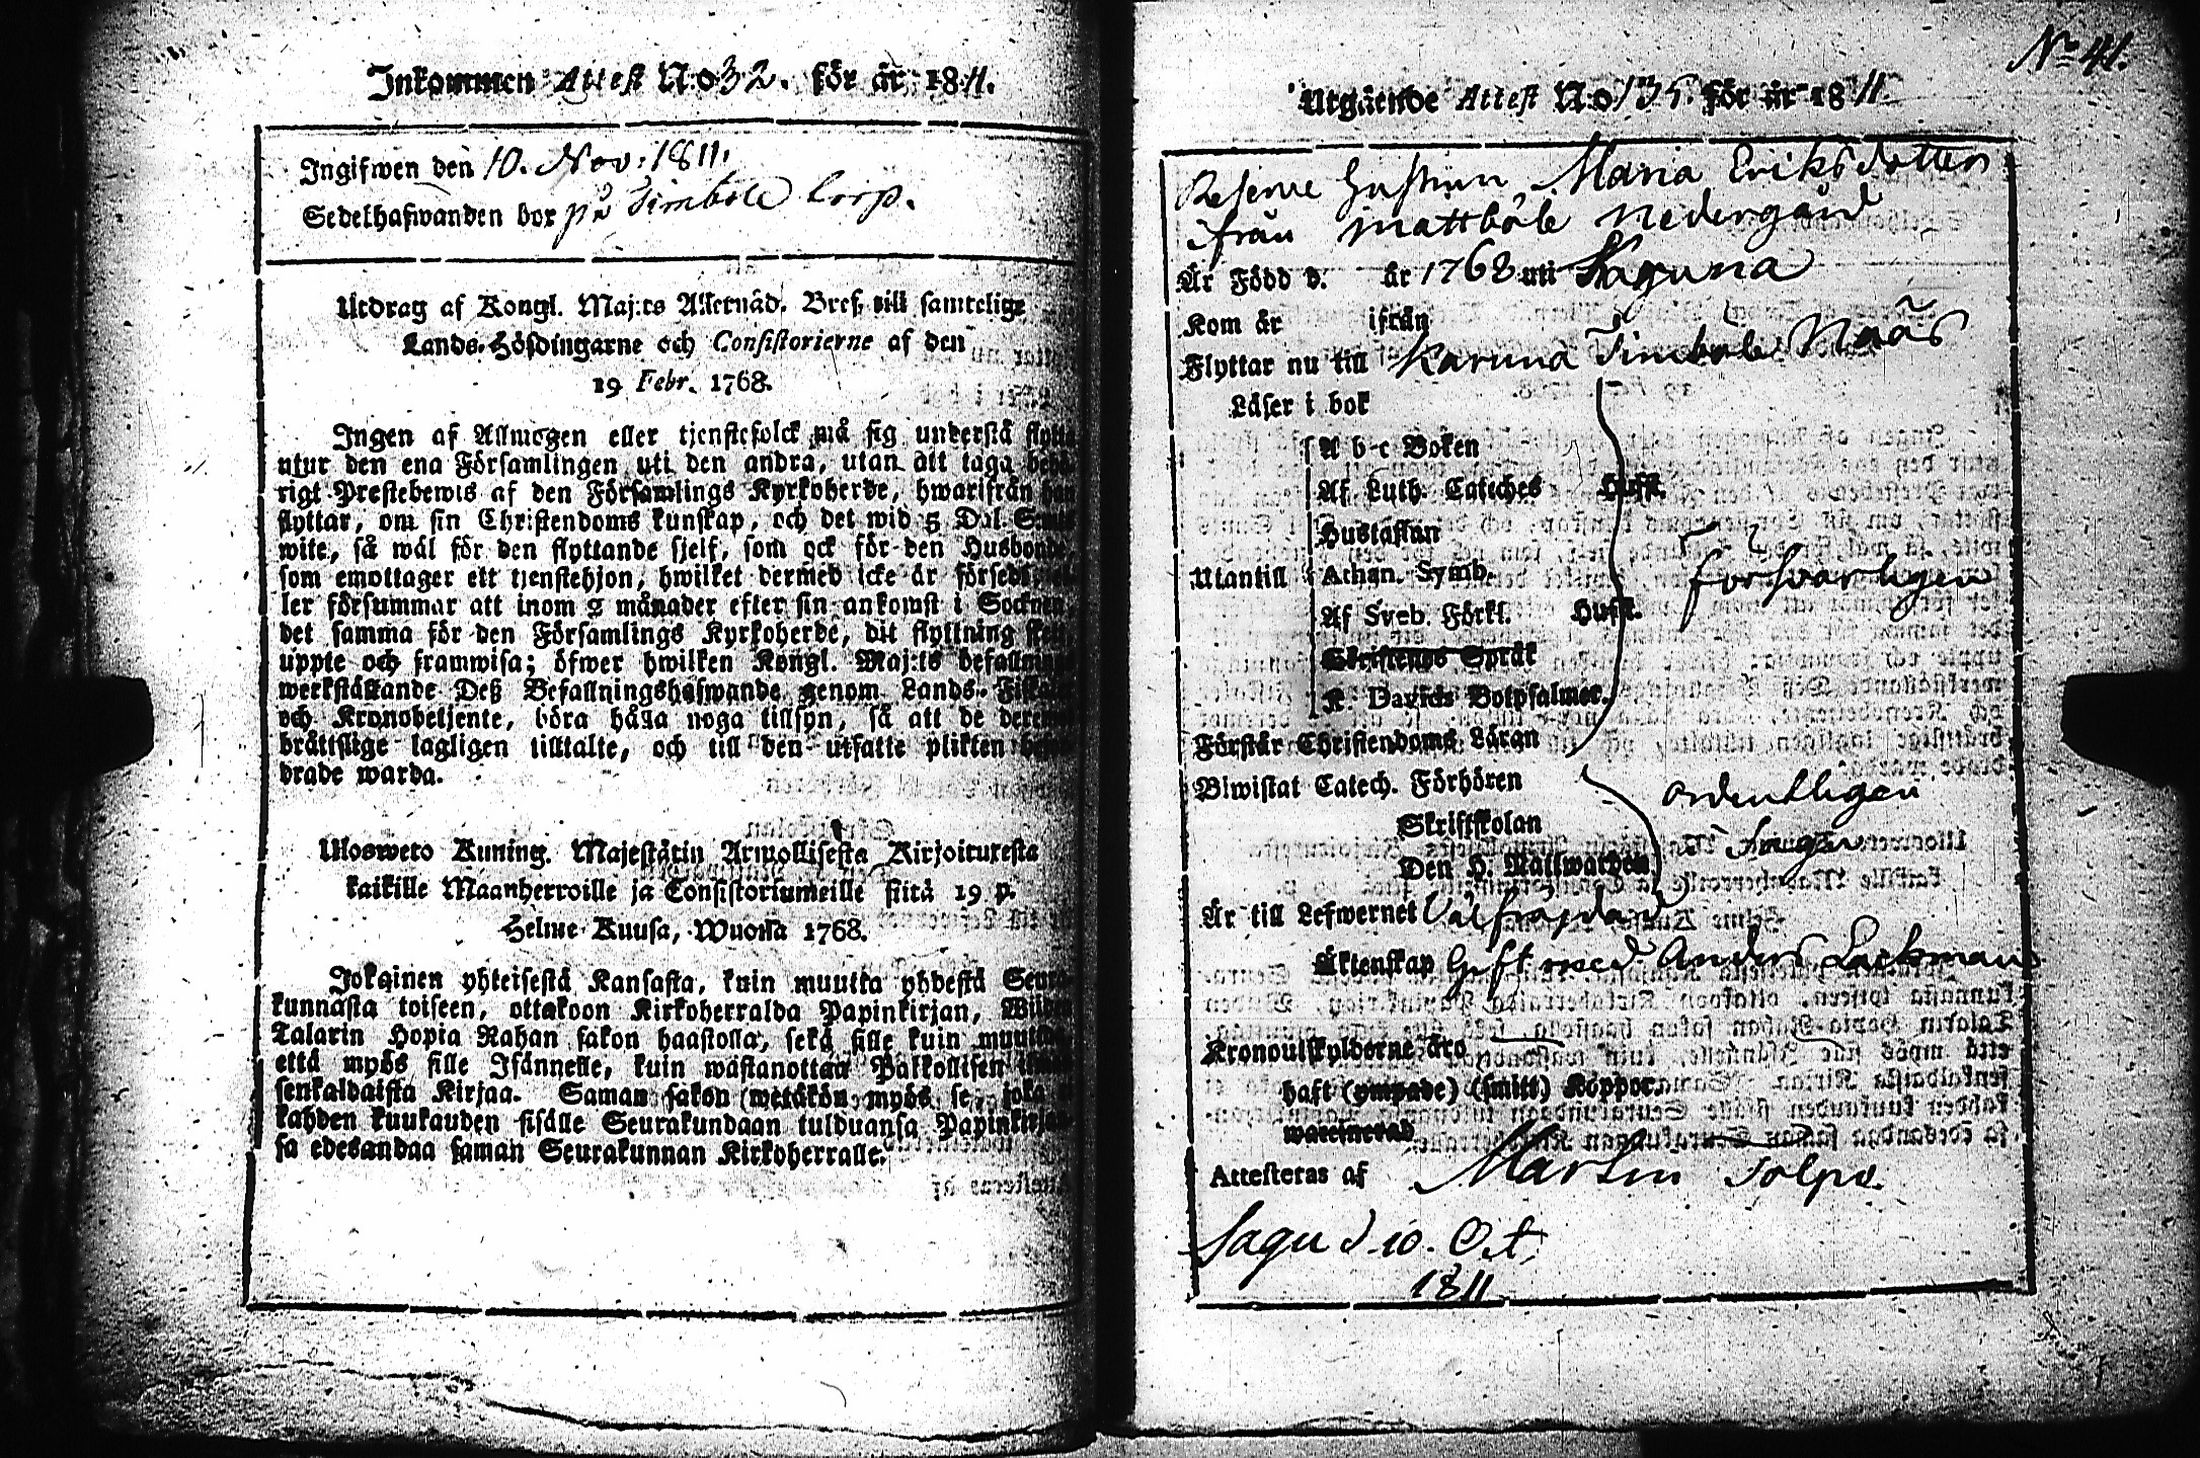 Inkommen Attest N:o 32. för år 1811.
Ingifwen den 10. Nov. 1811.
Sedelhafwanden bor på Timböle
Utdrag af Kongl. Maj:ts Allernåd. Bref, till samtelige
Lands-Höfdingarne och Consistorierne af den
19 Febr. 1768.
Ingen af Allmogen eller tjenstefolck må sig understå flytta
utur den ena Församlingen uti den andra, utan att taga
rigt Prestebewis af den Församlings Kyrkoherde, hwarifrån
flyttar, om sin Christendoms kunskap, och det wid 5 Dal.
wite, så wäl för den flyttande sjelf, som ock för den
som emottager ett tjenstehjon, hwilket dermed icke är
ler försummar att inom 2 månader efter sin ankomst i
det samma för den Församlings Kyrkoherde, dit flyttning
uppte och framwisa; öfwer hwilken Kongl. Maj:ts
werkställande Deß Befallningshafwande genom Lands-
och Kronobetjente, böra hålla noga tillsyn, så att de
bråttslige lagligen tilltalte, och till den utsatte plikten
drade warda.
Ulosweto Kuning. Majestätin Armollisesta Kirjoituresta
kaikille Maanherroille ja Consistoriumeille siitä 19 p.
Helme Kuusa, Wuonna 1768.
Jokainen yhteisestä Kansasta, kuin muutta yhdestä
kunnasta toiseen, ottakoon Kirkoherralda Papinkirjan,
Talarin Hopia Rahan sakon haastolla, sekä sille kuin
että myös sille Isännelle, kuin wastanottaa Palkollisen
senkaldaista Kirjaa. Saman sakon wetäkön myös se, joka
kahden kuukauden sisälle Seurakundaan tulduansa
sa edesandaa saman Seurakunnan Kirkoherralle.
N:o 41.
Utgående Attest N:o 135. för år 1811
Hustrun Maria Eriksdotter
ifrån Mattböle Nedergård
Är Född d. år 1768 uti Saguna
Kom år ifrån
Flyttar nu till Karuna Timböle Näs
Läser i bok
A b-c Boken
Af Luth. Catches Hufst.
Hustaflan
Utantill Athan. Symb. försvarligen
Af Sveb. Förkl. Hufst.
Skriftenes Språk
K. Davids Botpsalmer.
Förstår Christendoms Läran
Biwistat Catech. Förhören ordentligen
Skriftskolan
Den H. Nattwarden
Är till Lefwernet Välfräjdad
Äktenskap Gift med Anders Lackman
Kronoutskylderne äro
haft (ympade) (smitt) Koppor.
waccinerad
Attesteras af Martin Tolpo.
Sagu d. 10. Oct.
1811